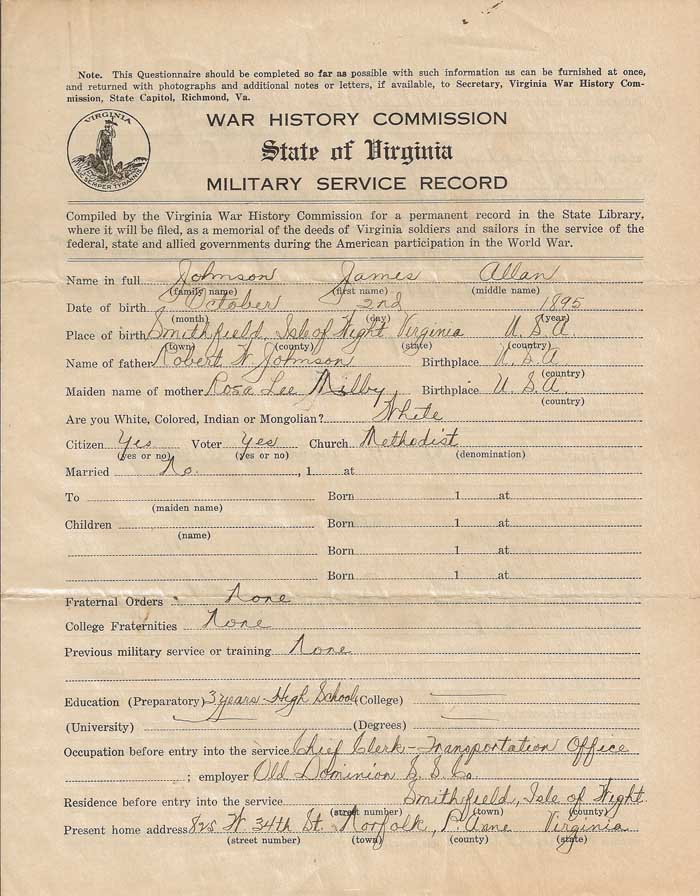 Note. This Questionnaire should be completed so far as possible with such information as can be furnished at once,
and returned with photographs and additional notes or letters, if available, to Secretary, Virginia War History Com-
mission, State Capitol, Richmond, Va.
VIRGINIA
SIC SEMPER TYRANNIS
WAR HISTORY COMMISSION
State of Virginia
MILITARY SERVICE RECORD
Compiled by the Virginia War History Commission for a permanent record in the State Library,
where it will be filed, as a memorial of the deeds of Virginia soldiers and sailors in the service of the
federal, state and allied governments during the American participation in the World War.
Name in full Johnson James Allan
(family name) (first name) (middle name)
Date of birth October 2nd 1895
(month) (day) (year)
Place of birth Smithfield, Isle of Wight Virginia U. S. A.
(town) (county) (state) (country)
Name of father Robert W. Johnson Birthplace U. S. A.
(country)
Maiden name of mother Rosa Lee Milby Birthplace U. S. A.
(country)
Are you White, Colored, Indian or Mongolian? White
Citizen Yes Voter Yes Church Methodist
(yes or no) (yes or no) (denomination)
Married No. , 1 at
To Born 1 at
(maiden name)
Children Born 1 at
(name)
Born 1 at
Born 1 at
Fraternal Orders None
College Fraternities None
Previous military service or training None
Education (Preparatory) 3 years - High School (College)
(University) (Degrees)
Occupation before entry into the service Chief Clerk - Transportation Office
; employer Old Dominion S. S. Co.
Residence before entry into the service Smithfield, Isle of Wight
(street number) (town) (county)
Present home address 825 W. 34th St. Norfolk, P. Anne Virginia
(street number) (town) (county) (state)